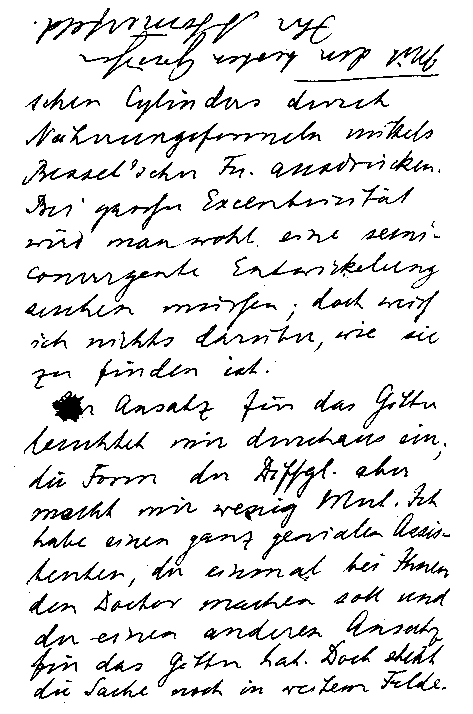 Mit den besten Grüßen
Ihr
schen Cylinders durch
Näherungsformeln mittels
Bessel'scher Fn. ausdrücken.
Bei großer Excentrizität
wird man wohl eine semi-
convergente Entwickelung
suchen müssen; doch weiß
ich nichts darüber, wie sie
zu finden ist.
Der Ansatz für das Gitter
leuchtet mir durchaus ein;
die Form der Diffgl. aber
macht mir wenig Mut. Ich
habe einen ganz genialen Assis-
tenten, der einmal bei Ihnen
den Doctor machen soll und
der einen anderen Ansatz
für das Gitter hat. Doch steht
die Sache noch in weitem Felde.